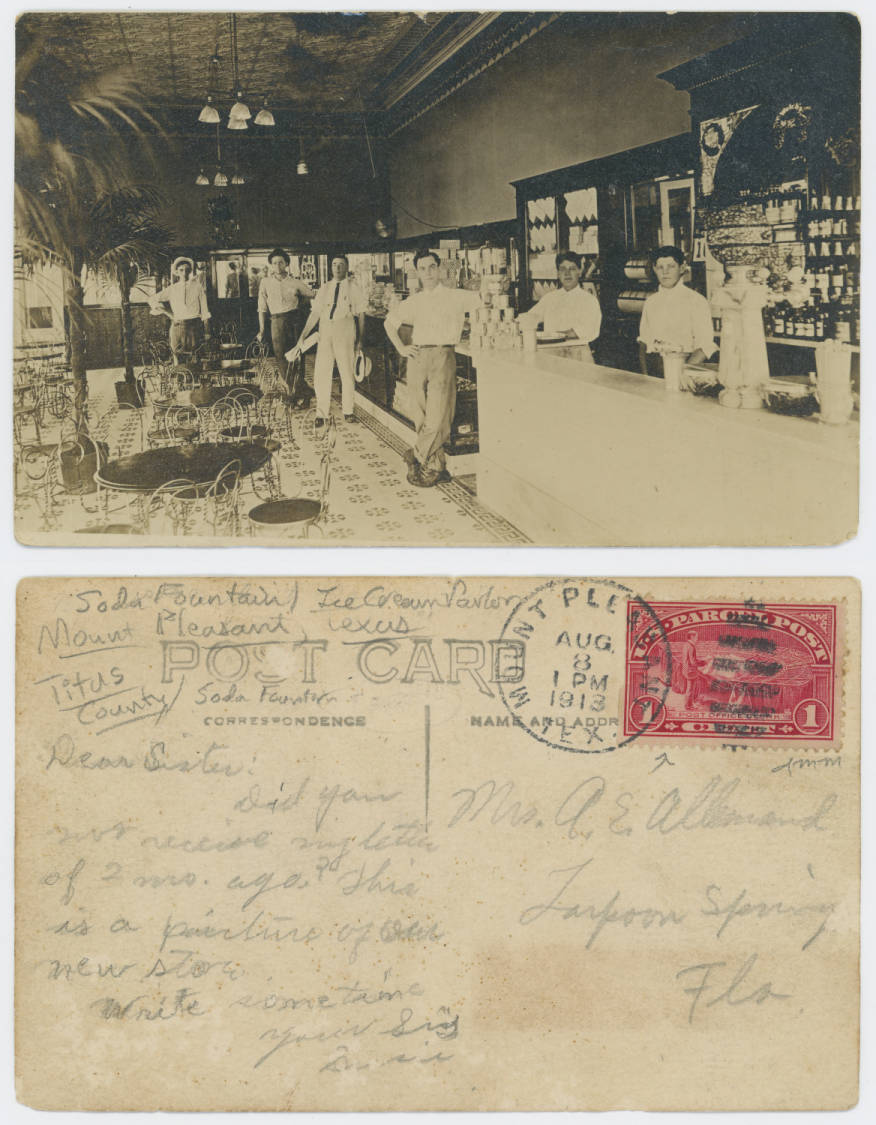 Soda Fountain / Ice Cream Parlor
Mount Pleasant, Texas
Titus
County
Soda Fountain
POST CARD
CORRESPONDENCE
NAME AND ADDR
MOUNT PLEASANT
AUG.
8
1 PM
1913
TEX.
U.S. PARCEL POST
POST OFFICE CLERK
1 CENT 1
Dear Sister:
Did you
not receive my letter
of 2 mos. ago? This
is a picture of our
new store
Write sometime
your
Mrs. A. E. Allemand
Tarpoon Spring
Fla